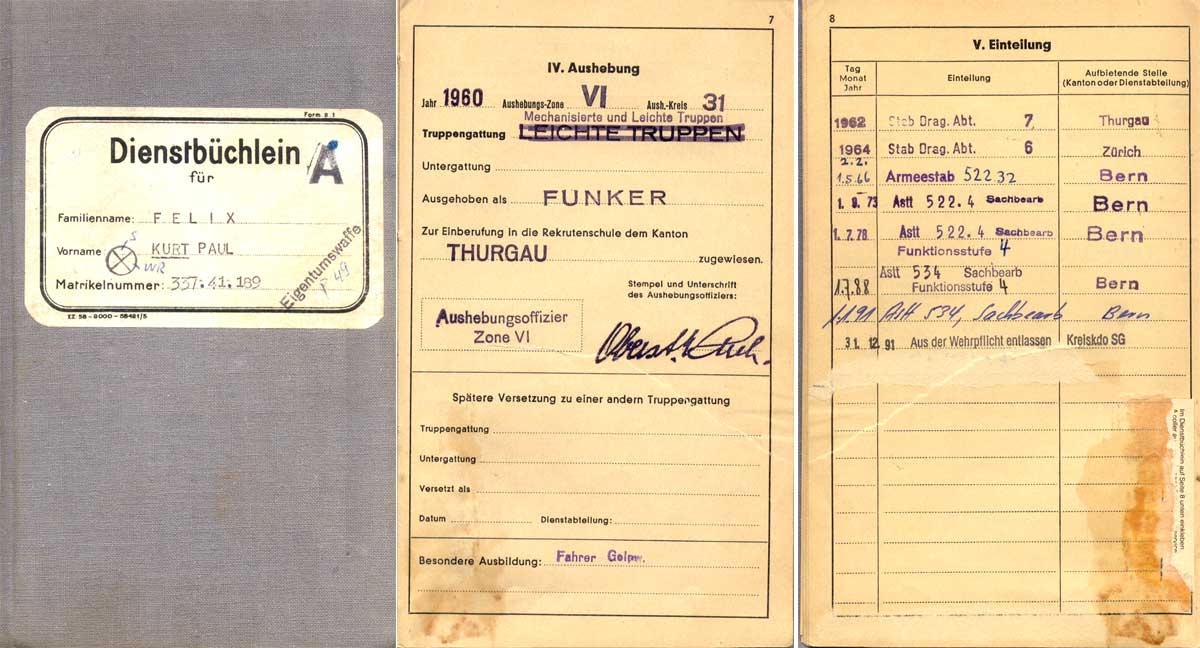 Form 2.1
Dienstbüchlein A
für
Familienname: FELIX
Vorname KURT PAUL
S
WR
Matrikelnummer: 337.41.189
Eigentumswaffe
P 49
ZZ 58-8000-58421/5
7
IV. Aushebung
Jahr 1960 Aushebungs-Zone VI Aush.-Kreis 31
Mechanisierte und Leichte Truppen
Truppengattung LEICHTE TRUPPEN
Untergattung
Ausgehoben als FUNKER
Zur Einberufung in die Rekrutenschule dem Kanton
THURGAU zugewiesen.
Stempel und Unterschrift
des Aushebungsoffiziers:
Aushebungsoffizier
Zone VI
Oberst.
Spätere Versetzung zu einer andern Truppengattung
Truppengattung
Untergattung
Versetzt als
Datum Dienstabteilung:
Besondere Ausbildung: Fahrer Gelpw.
8
V. Einteilung
Tag
Monat
Jahr
Einteilung
Aufbietende Stelle
(Kanton oder Dienstabteilung)
1962 Stab Drag. Abt. 7 Thurgau
1964 Stab Drag. Abt. 6 Zürich
2.2.
1.5.66 Armeestab 522 32 Bern
1. 9. 73 Astt 522.4 Sachbearb Bern
1. 7. 78 Astt 522.4 Sachbearb Bern
Funktionsstufe 4
Astt 534 Sachbearb
1.7.88 Funktionsstufe 4 Bern
1.1.91 Astt 534, Sachbearb Bern
31. 12. 91 Aus der Wehrpflicht entlassen Kreiskdo SG
Im Dienstbüchlein auf Seite 8 unten einkleben